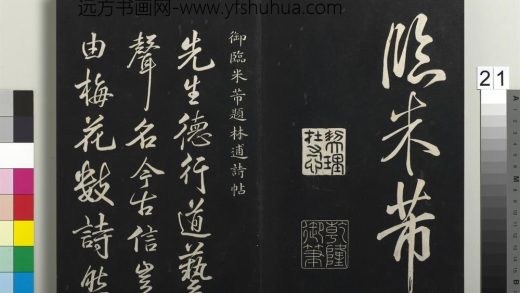 远方书画网- www.yfshuhua.com
臨米芾
乾隆
御筆
御臨米芾題林逋詩帖
先生德行道藝
聲名今古信豈
由梅花數詩然
21